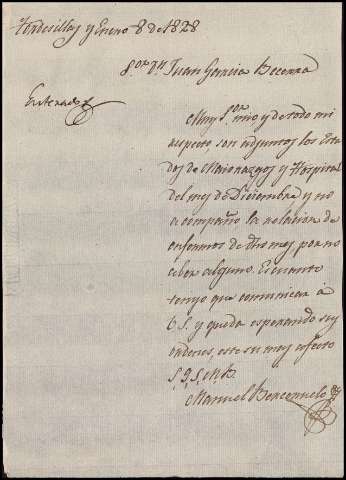 Tordesillas y Enero 8 de 1828
S.or D.n Juan Garcia Becerra
Enterado
Muy S.or mio y de todo mi
respecto son adjuntos los Esta
dos de Maiorazgos y Hospital
del mes de Diciembre y no
acompaño la relacion de
enfermos de dho mes por no
aber alguno. Es cuanto
tengo que comunicar á
V.S. y queda esperando sus
ordenes, este su mas afecto
S. Q. S. M. B.
Manuel